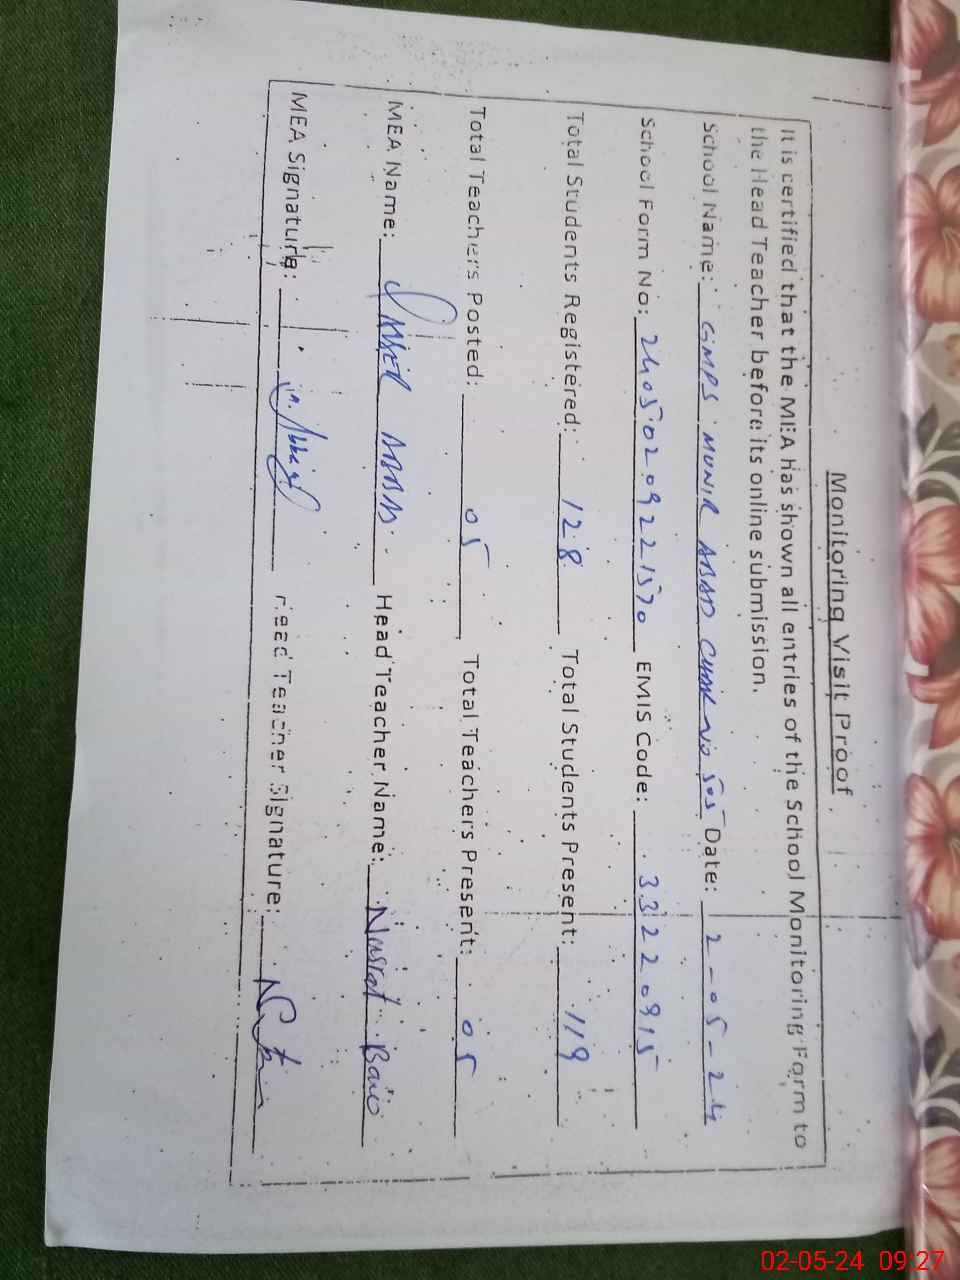 Monitoring Visit Proof
It is certified that the MEA has shown all entries of the School Monitoring Form to
the Head Teacher before its online submission.
School Name: GMPS MUNIR ABAD CHAK NO 505 Date: 2-05-24
School Form No: EMIS Code: 33220915
Total Students Registered: 128 Total Students Present: 119
Total Teachers Posted: 05 Total Teachers Present: 05
MEA Name: Head Teacher Name: Nusrat Bano
MEA Signature: Head Teacher Signature:
02-05-24 09:27